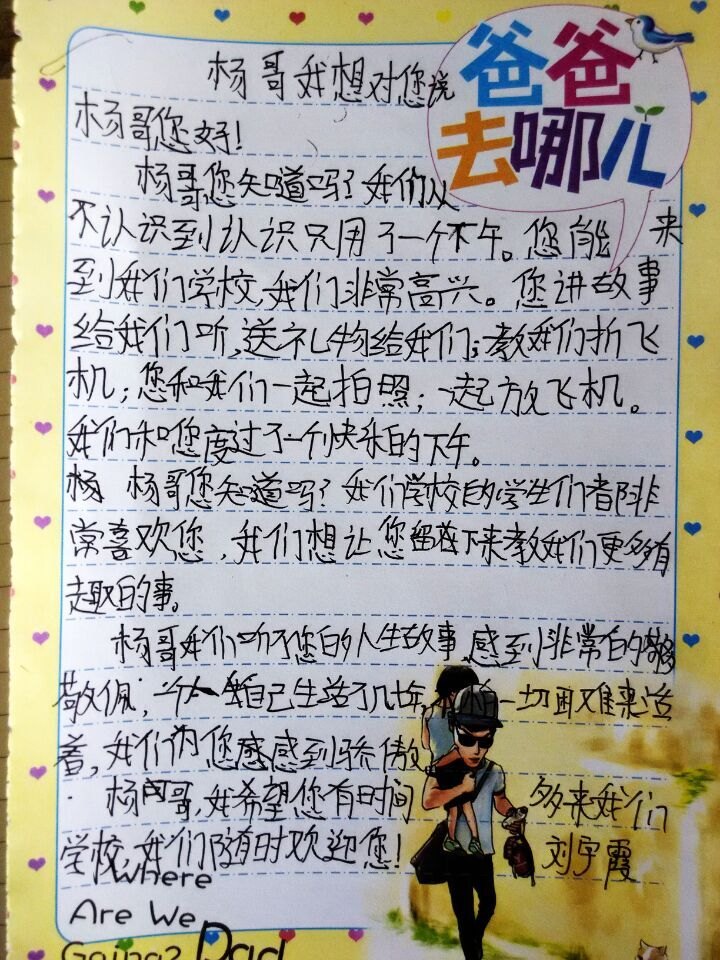 杨哥我想对您说
爸爸去哪儿
杨哥您好!
杨哥您知道吗?我们从
不认识到认识只用了一个下午。您能来
到我们学校,我们非常高兴。您讲故事
给我们听,送礼物给我们;教我们折飞
机;您和我们一起拍照;一起放飞机。
我们和您度过了一个快乐的下午。
杨 杨哥您知道吗?我们学校的学生们都非
常喜欢您,我们想让您留下来教我们更多有
趣的事。
杨哥我们听了您的人生故事,感到非常的
敬佩,个人自己生活了几年,一切困难来活
着,我们为您感感到骄傲
杨哥,我希望您有时间多来我们
学校,我们随时欢迎您! 刘宇霞
Where
Are We
Going? Dad